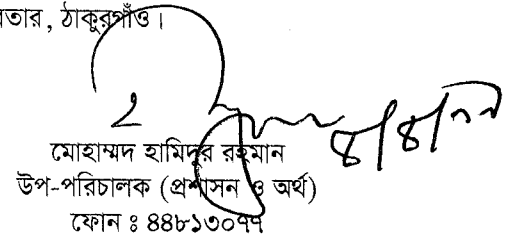 বেতার, ঠাকুরগাঁও।
মোহাম্মদ হামিদুর রহমান
উপ-পরিচালক (প্রশাসন ও অর্থ)
ফোন ঃ ৪৪৮১৩০৭৭